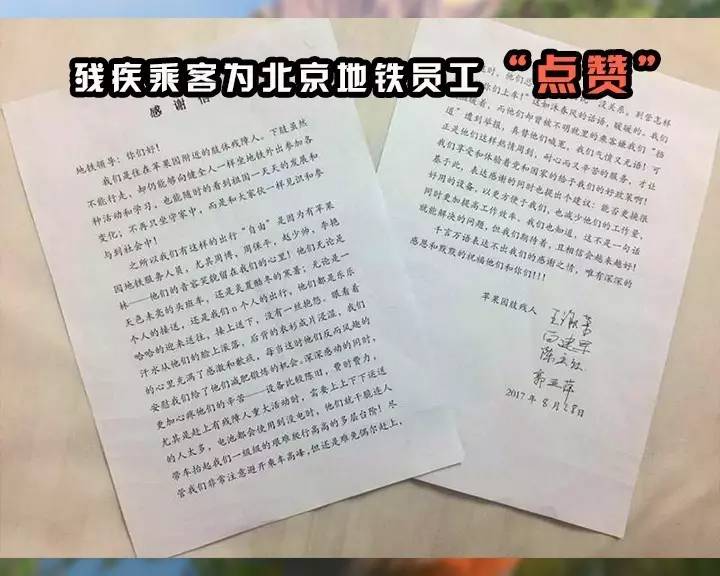 残疾乘客为北京地铁员工“点赞”
感谢信
地铁领导:你们好!
我们是住在苹果园附近的肢体残障人。下肢虽然
不能行走,却仍能够向健全人一样坐地铁外出参加各
种活动和学习,也能随时的看到祖国一天天的发展和
变化;不再只坐守家中,而是和大家伙一样见识和参
与到社会中!
之所以我们有这样的出行“自由”是因为有苹果
园地铁服务人员,尤其周博,周保牛,赵少帅,李艳
林——他们的音容笑貌留在我们的心里!他们无论是
天色未亮的头班车,还是炎夏酷冬的寒暑;无论是一
个人的接送,还是我们个人的出行,他们都是乐乐
哈哈的迎来送往,接上送下,没有一丝抱怨。眼看着
汗水从他们的脸上深落,后背的衣衫成片浸湿,我们
的心里充满了感激和歉疚,每当这时他们反而风趣的
安慰我们给了他们减肥锻炼的机会。深深感动的同时,
更加心疼他们的辛苦——设备比较陈旧,费时费力,
尤其是赶上有残障人重大活动的,需要上上下下运送
的人太多,电池都会使用到没电时,他们就干脆连人
带车抬起我们一级级的艰难爬行高高的多层台阶!尽
管我们非常注意避开乘车高峰,但还是难免偶尔赶上,
时,他们总 没关系,到管怎样
们上车!”这如沐春风的话语,暖暖的,我们
暖着,而他们却曾被不明就里的乘客嫌我们“挡
道”遭到举报,真替他们喊冤。我们气愤又无语!可
正是他们这样热情周到,耐心而又辛苦的服务,才让
我们享受和体验着党和国家的给予我们的好政策啊!
基于此,表达感谢的同时也提出个建议:能否更换很
好用的设备,以更方便于我们,也减少他们的工作量,
同时更加提高工作效率。我们也知道,这不是一句话
就能解决的问题,但我们期待着,且相信会越来越好!
千言万语表达不出我们的感谢之情,唯有深深的
感恩和默默的祝福他们和你们!!!
苹果园肢残人
2017 年 8 月 28 日